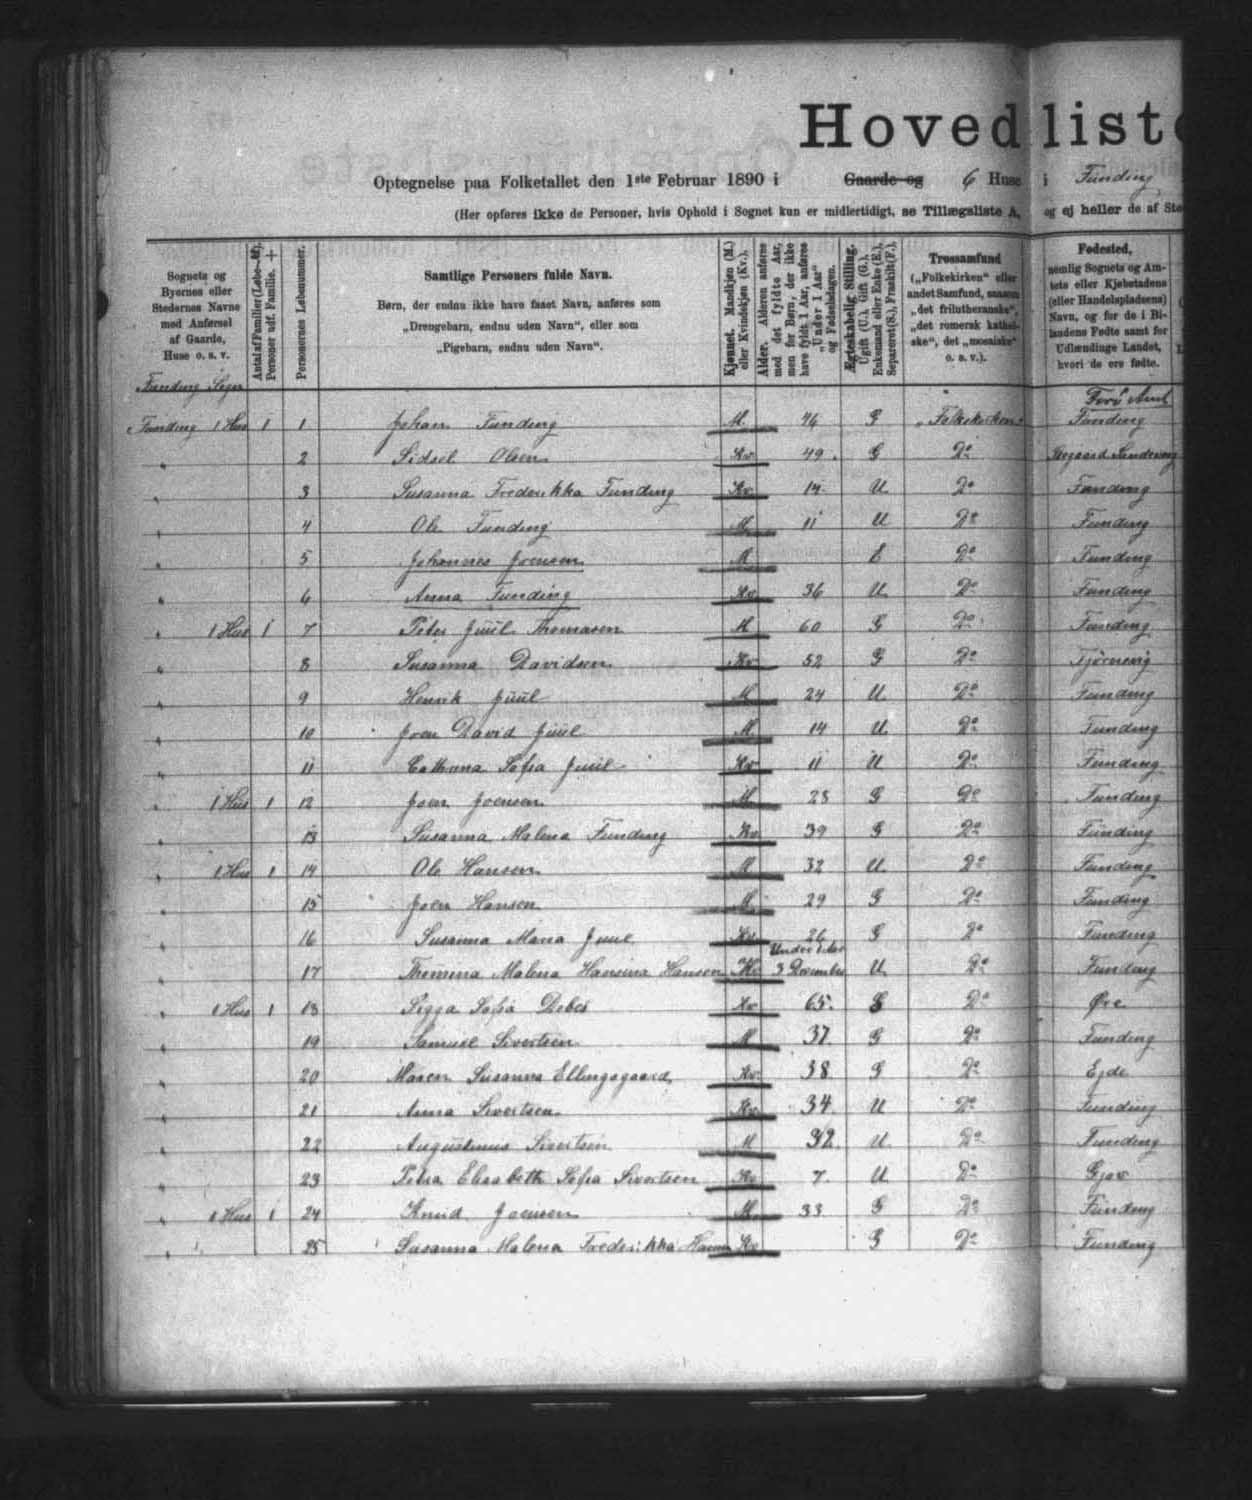 Hovedliste
Optegnelse paa Folketallet den 1ste Februar 1890 i Gaarde og 6 Huse i Funding
(Her opføres ikke de Personer, hvis Ophold i Sognet kun er midlertidigt, se Tillægsliste A, og ej heller de af Ste
Sognets og Byernes eller Stedernes Navne med Anførsel af Gaarde, Huse o. s. v.
Antal af Familier (Løbe-Nr). Personer udf. Familie. +
Personernes Løbenummer.
Samtlige Personers fulde Navn.
Børn, der endnu ikke have faaet Navn, anføres som
„Drengebarn, endnu uden Navn“, eller som
„Pigebarn, endnu uden Navn“.
Kjønnet. Mandkjøn (M.) eller Kvindekjøn (Kv.).
Alder. Alderen anføres med det fyldte Aar, men for Børn, der ikke have fyldt 1 Aar, anføres „Under 1 Aar“ og Fødselsdagen.
Ægteskabelig Stilling. Ugift (U.), Gift (G.), Enkemand eller Enke (E.), Separeret (S.), Fraskilt (F.).
Trossamfund
(„Folkekirken“ eller andet Samfund, saasom „det frilutheranske“, „det romersk katholske“, det „mosaiske“ o. s. v.).
Fødested,
nemlig Sognets og Amtets eller Kjøbstadens (eller Handelspladsens) Navn, og for de i Bilandens Fødte samt for Udlændinge Landet, hvori de ere fødte.
Funding Sogn
Færø Amt
Funding 1 Hus 1 1 Johan Funding M. 46 G „Folkekirken“ Funding
" 2 Sidsel Olsen Kv 49. G Do
" 3 Susanna Frederikka Funding Kv 14. U Do Funding
" 4 Ole Funding M 11 U Do Funding
" 5 Johannes Joensen M E Do Funding
" 6 Anna Funding Kv 36 U Do Funding
" 1 Hus 1 7 Peter Juül Thomasen M 60 G Do Funding
" 8 Susanna Davidsen Kv 52 G Do Tjörnevig
" 9 Henrik Juül M 24 U Do Funding
" 10 Joen David Juül M 14 U Do Funding
" 11 Cathrina Sofia Juül Kv 11 U Do Funding
" 1 Hus 1 12 Joen Joensen M 28 G Do Funding
" 13 Susanna Malena Funding Kv 39 G Do Funding
" 1 Hus 1 14 Ole Hansen M 32 U. Do Funding
" 15 Joen Hansen M 29 G Do Funding
" 16 Susanna Maria Juul Kv 26 G Do Funding
" 17 Thomina Malena Hansina Hansen Kv Under 1 Aar 3 December U Do Funding
" 1 Hus 1 18 Sigga Sofia Debes Kv 65. Do Øre
" 19 Samuel Sivertsen M 37. G Do Funding
" 20 Maren Susanna Ellingsgaard Kv 38 G Do Ejde
" 21 Anna Sivertsen Kv 34 U Do Funding
" 22 Augustinus Sivertsen M 32. U. Do Funding
" 23 Petra Elisabeth Sofia Sivertsen Kv 7. U Do Gjov
" 1 Hus 1 24 Knud Joensen M 33 G Do Funding
" 25 Susanna Malena Frederikka Kv G Do Funding